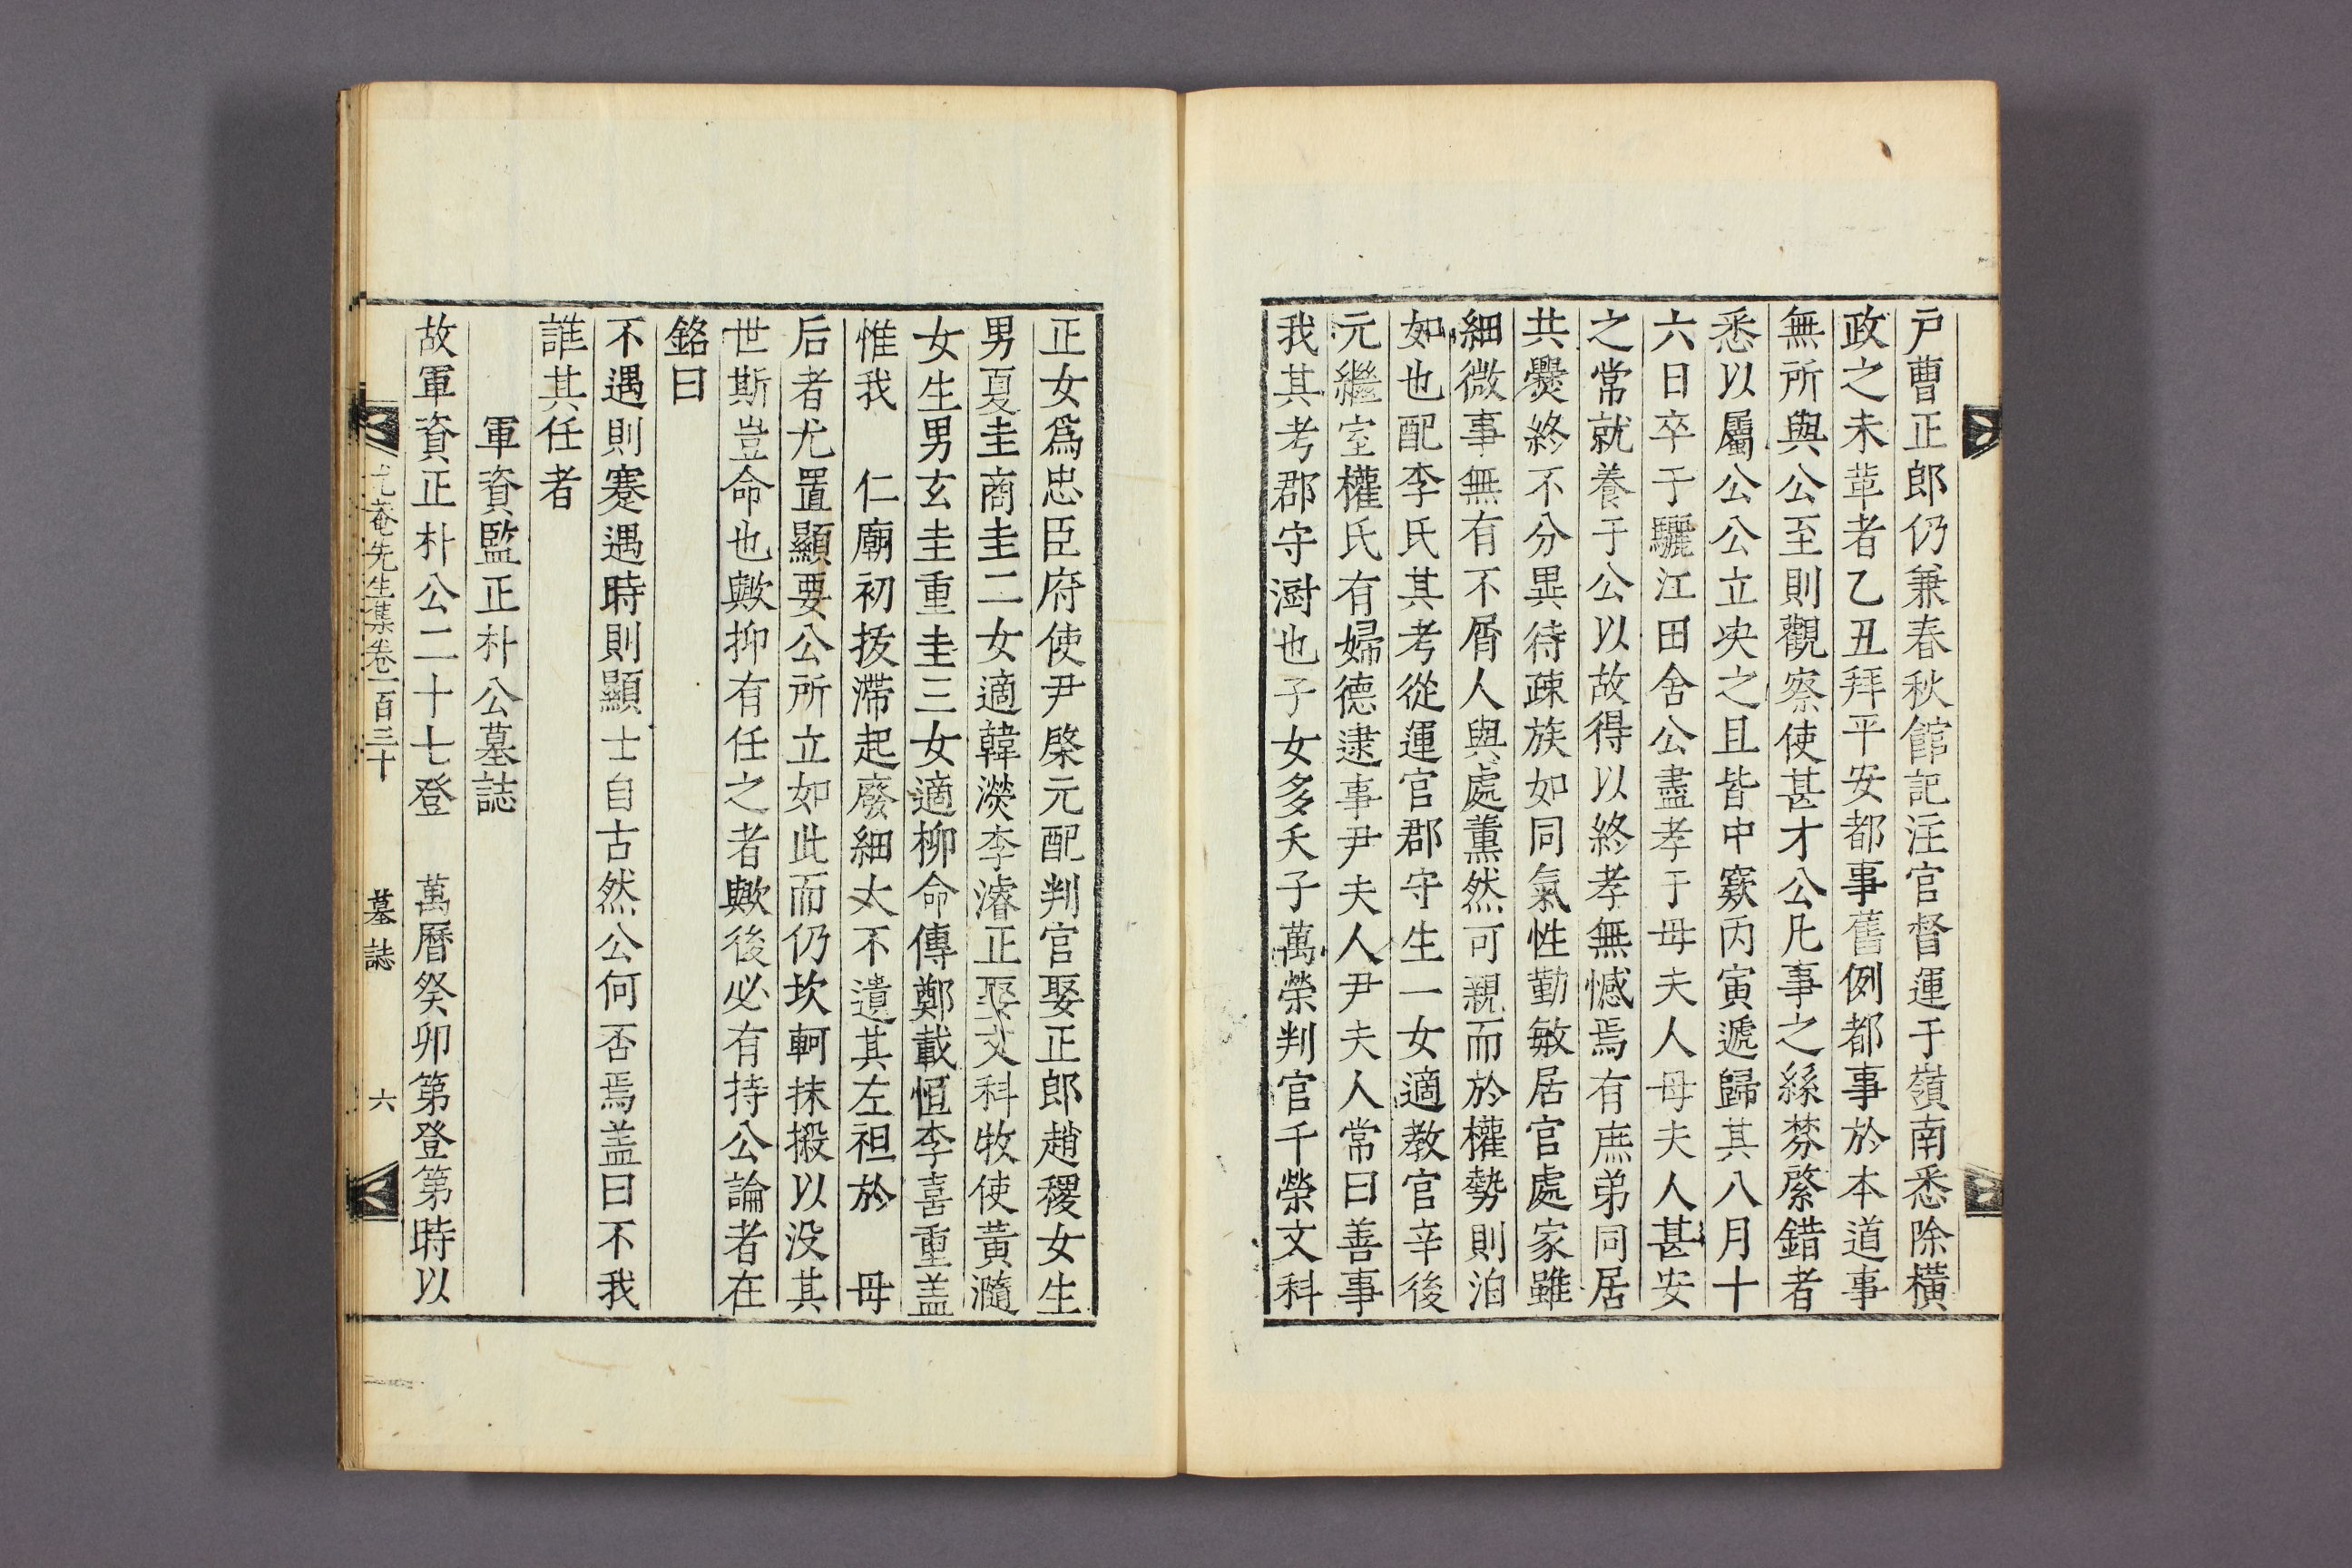 戶曹正郎仍兼春秋館記注官督運于嶺南悉除橫
政之未革者乙丑拜平安都事舊例都事於本道事
無所與公至則觀察使甚才公凡事之絲棼縈錯者
悉以屬公公立决之且皆中窾丙寅遞歸其八月十
六日卒于驪江田舍公盡孝于母夫人母夫人甚安
之常就養于公以故得以終孝無憾焉有庶弟同居
共爨終不分異待疎族如同氣性勤敏居官處家雖
細微事無有不屑人與處薰然可親而於權勢則泊
如也配李氏其考從運官郡守生一女適教官辛後
元繼室權氏有婦德逮事尹夫人尹夫人常曰善事
我其考郡守澍也子女多夭子萬榮判官千榮文科
正女爲忠臣府使尹棨元配判官娶正郎趙稷女生
男夏圭商圭二女適韓濙李濬正娶文科牧使黃瀡
女生男玄圭重圭三女適柳命傳鄭載恒李喜重盖
惟我　仁廟初拔滯起廢細大不遺其左袒於　母
后者尤置顯要公所立如此而仍坎軻抹摋以没其
世斯豈命也歟抑有任之者歟後必有持公論者在
銘曰
不遇則蹇遇時則顯士自古然公何否焉盖曰不我
誰其任者
軍資監正朴公墓誌
故軍資正朴公二十七登　萬曆癸卯第登第時以
尤菴先生集卷一百三十　墓誌　六